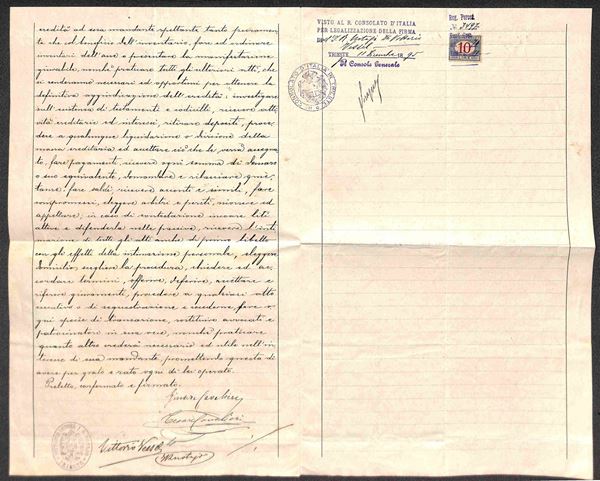 eredità al suo mandante spettante tanto puramente
che col beneficio dell'inventario, fare ed ordinare
inventari dell'asse e presentare la manifestazione
giurabile, nonchè praticare tutti gli ulteriori atti, che
si renderanno necessari ed opportuni per ottenere la
definitiva aggiudicazione dell'eredità; investigare
sull'esistenza di testamenti e codicilli, ricevere attività
ereditarie ed interessi, ritirare depositi, procedere
a qualunque liquidazione o divisione della
massa ereditaria ed accettare ciò che le verrà assegnato,
fare pagamenti, ricevere ogni somma di denaro
o suo equivalente, domandare e rilasciare quietanze,
fare saldi, ricevere acconti e sconti, fare
compromessi, eleggere arbitri e periti, ricorrere ed
appellare; in caso di contestazione incoare liti
attive e difenderla nelle passive, ricevere
di tutti gli atti anche di primo libello
con gli effetti della intimazione personale, eleggere
domicilio, scegliere la procedura, chiedere ed accordare
termini, offerire, deferire, accettare e
riferire giuramenti, procedere a qualsiasi atto
esecutivo o di sequestrazione e recederne, fare
ogni specie di transazione, sostituire avvocati e
patrocinatori in sua vece, nonchè praticare
quanto altro crederà necessario ed utile nell'interesse
di sua mandante, promettendo questa di
avere per grato e rato ogni di lei operato.
Prelotto, confermato e firmato.
Cesare Cavalieri
Vittorio
VISTO AL R. CONSOLATO D'ITALIA
PER LEGALIZZAZIONE DELLA FIRMA
TRIESTE 1895
Il Console Generale
Reg. Percez.
10